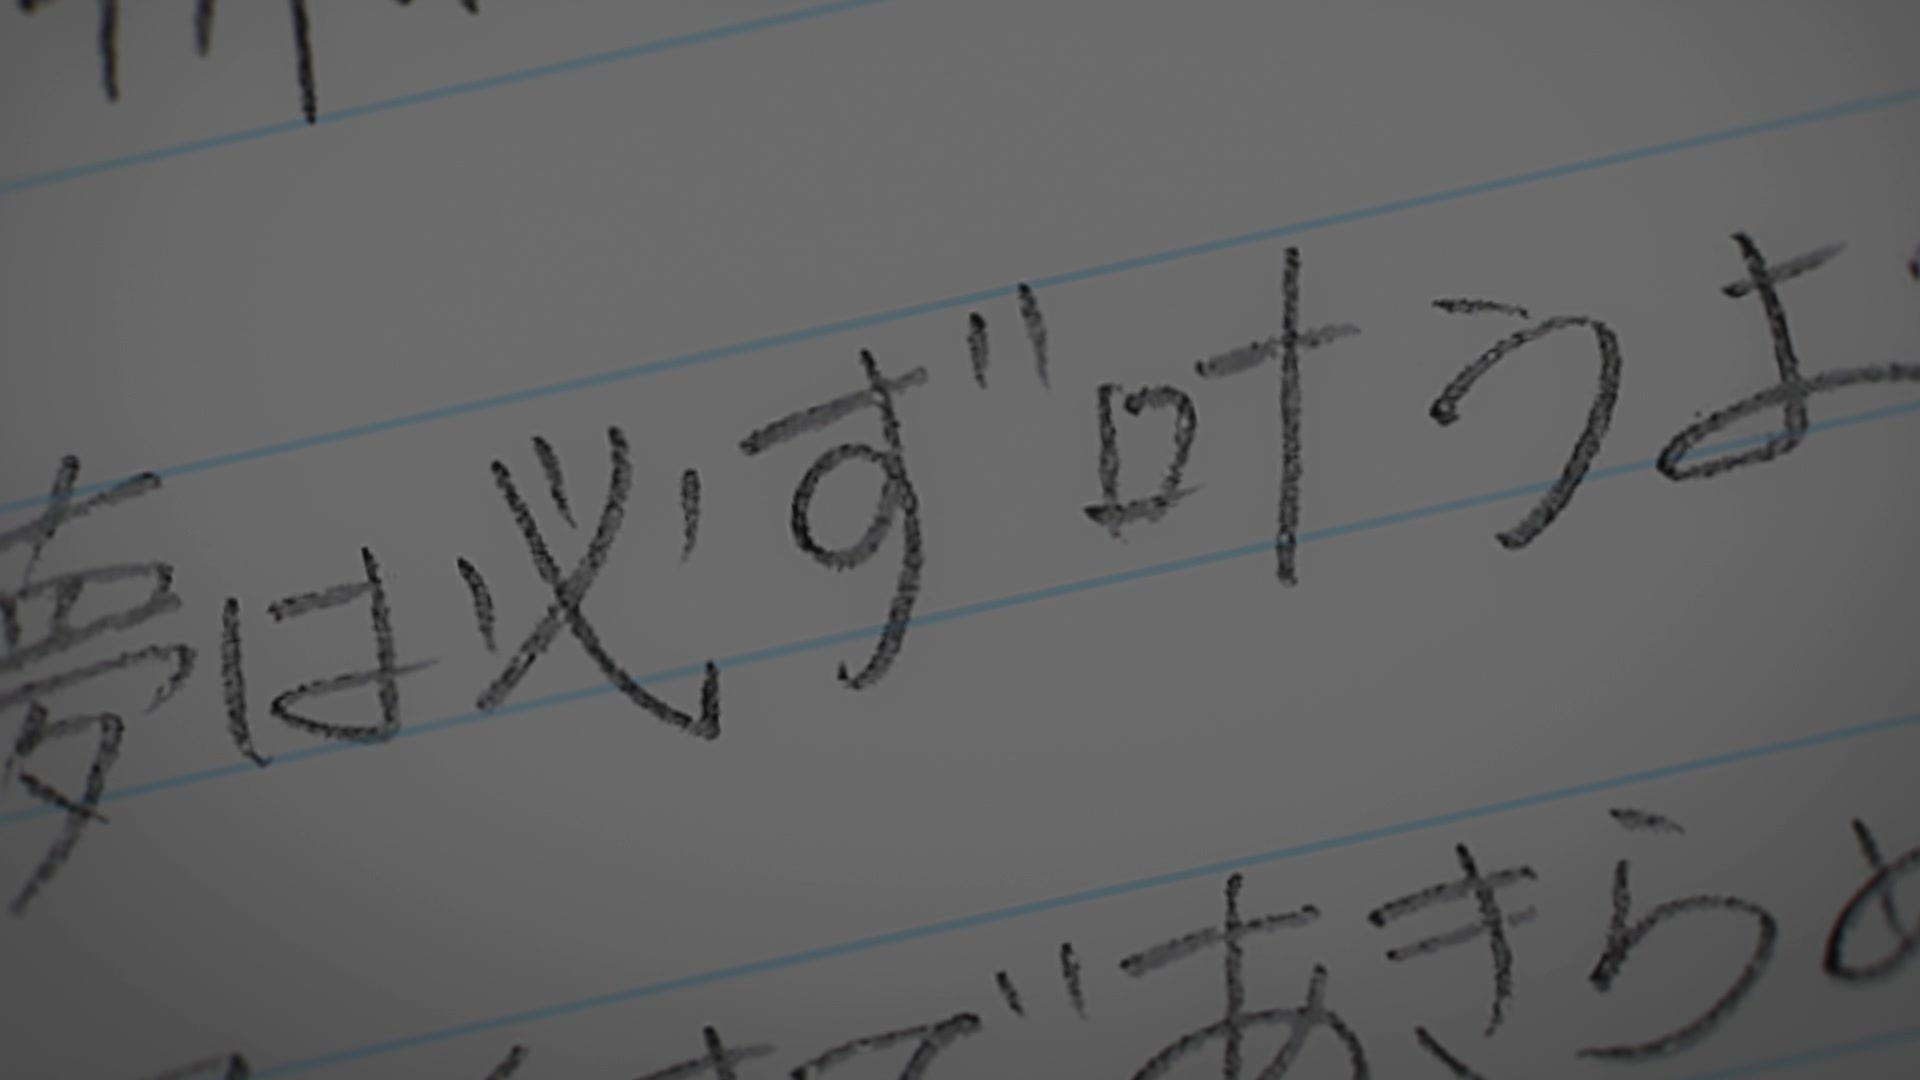 夢は必ず叶うよ
まであきらめ